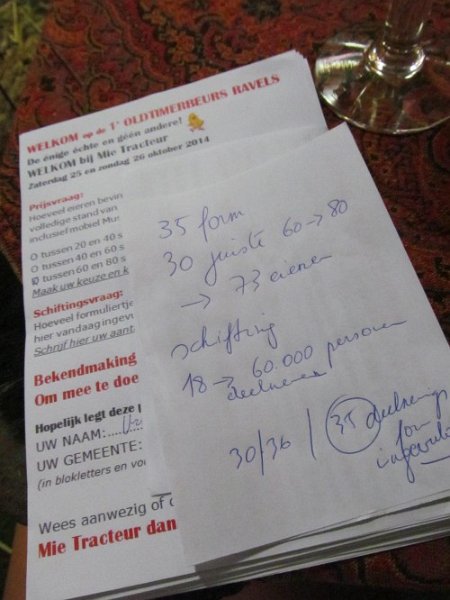 WELKOM op de 1e OLDTIMERBEURS RAVELS
De énige échte en géén andere!
WELKOM bij Mie Tracteur
Zaterdag 25 en zondag 26 oktober 2014
Prijsvraag:
Hoeveel eieren bevin
volledige stand van
inclusief mobiel Mur
O tussen 20 en 40 s
O tussen 40 en 60 s
O tussen 60 en 80 s
Maak uw keuze en k
Schiftingsvraag:
Hoeveel formuliertje
hier vandaag ingevu
Schrijf hier uw aant
Bekendmaking
Om mee te doe
Hopelijk legt deze
UW NAAM:
UW GEMEENTE:
(in blokletters en vo
Wees aanwezig of
Mie Tracteur dan
35 form
30 juiste 60 → 80
→ 73 eieren
schifting
18 → 60.000 personen
deelnemen
30/36 | 35 deelnemings
form
ingevuld